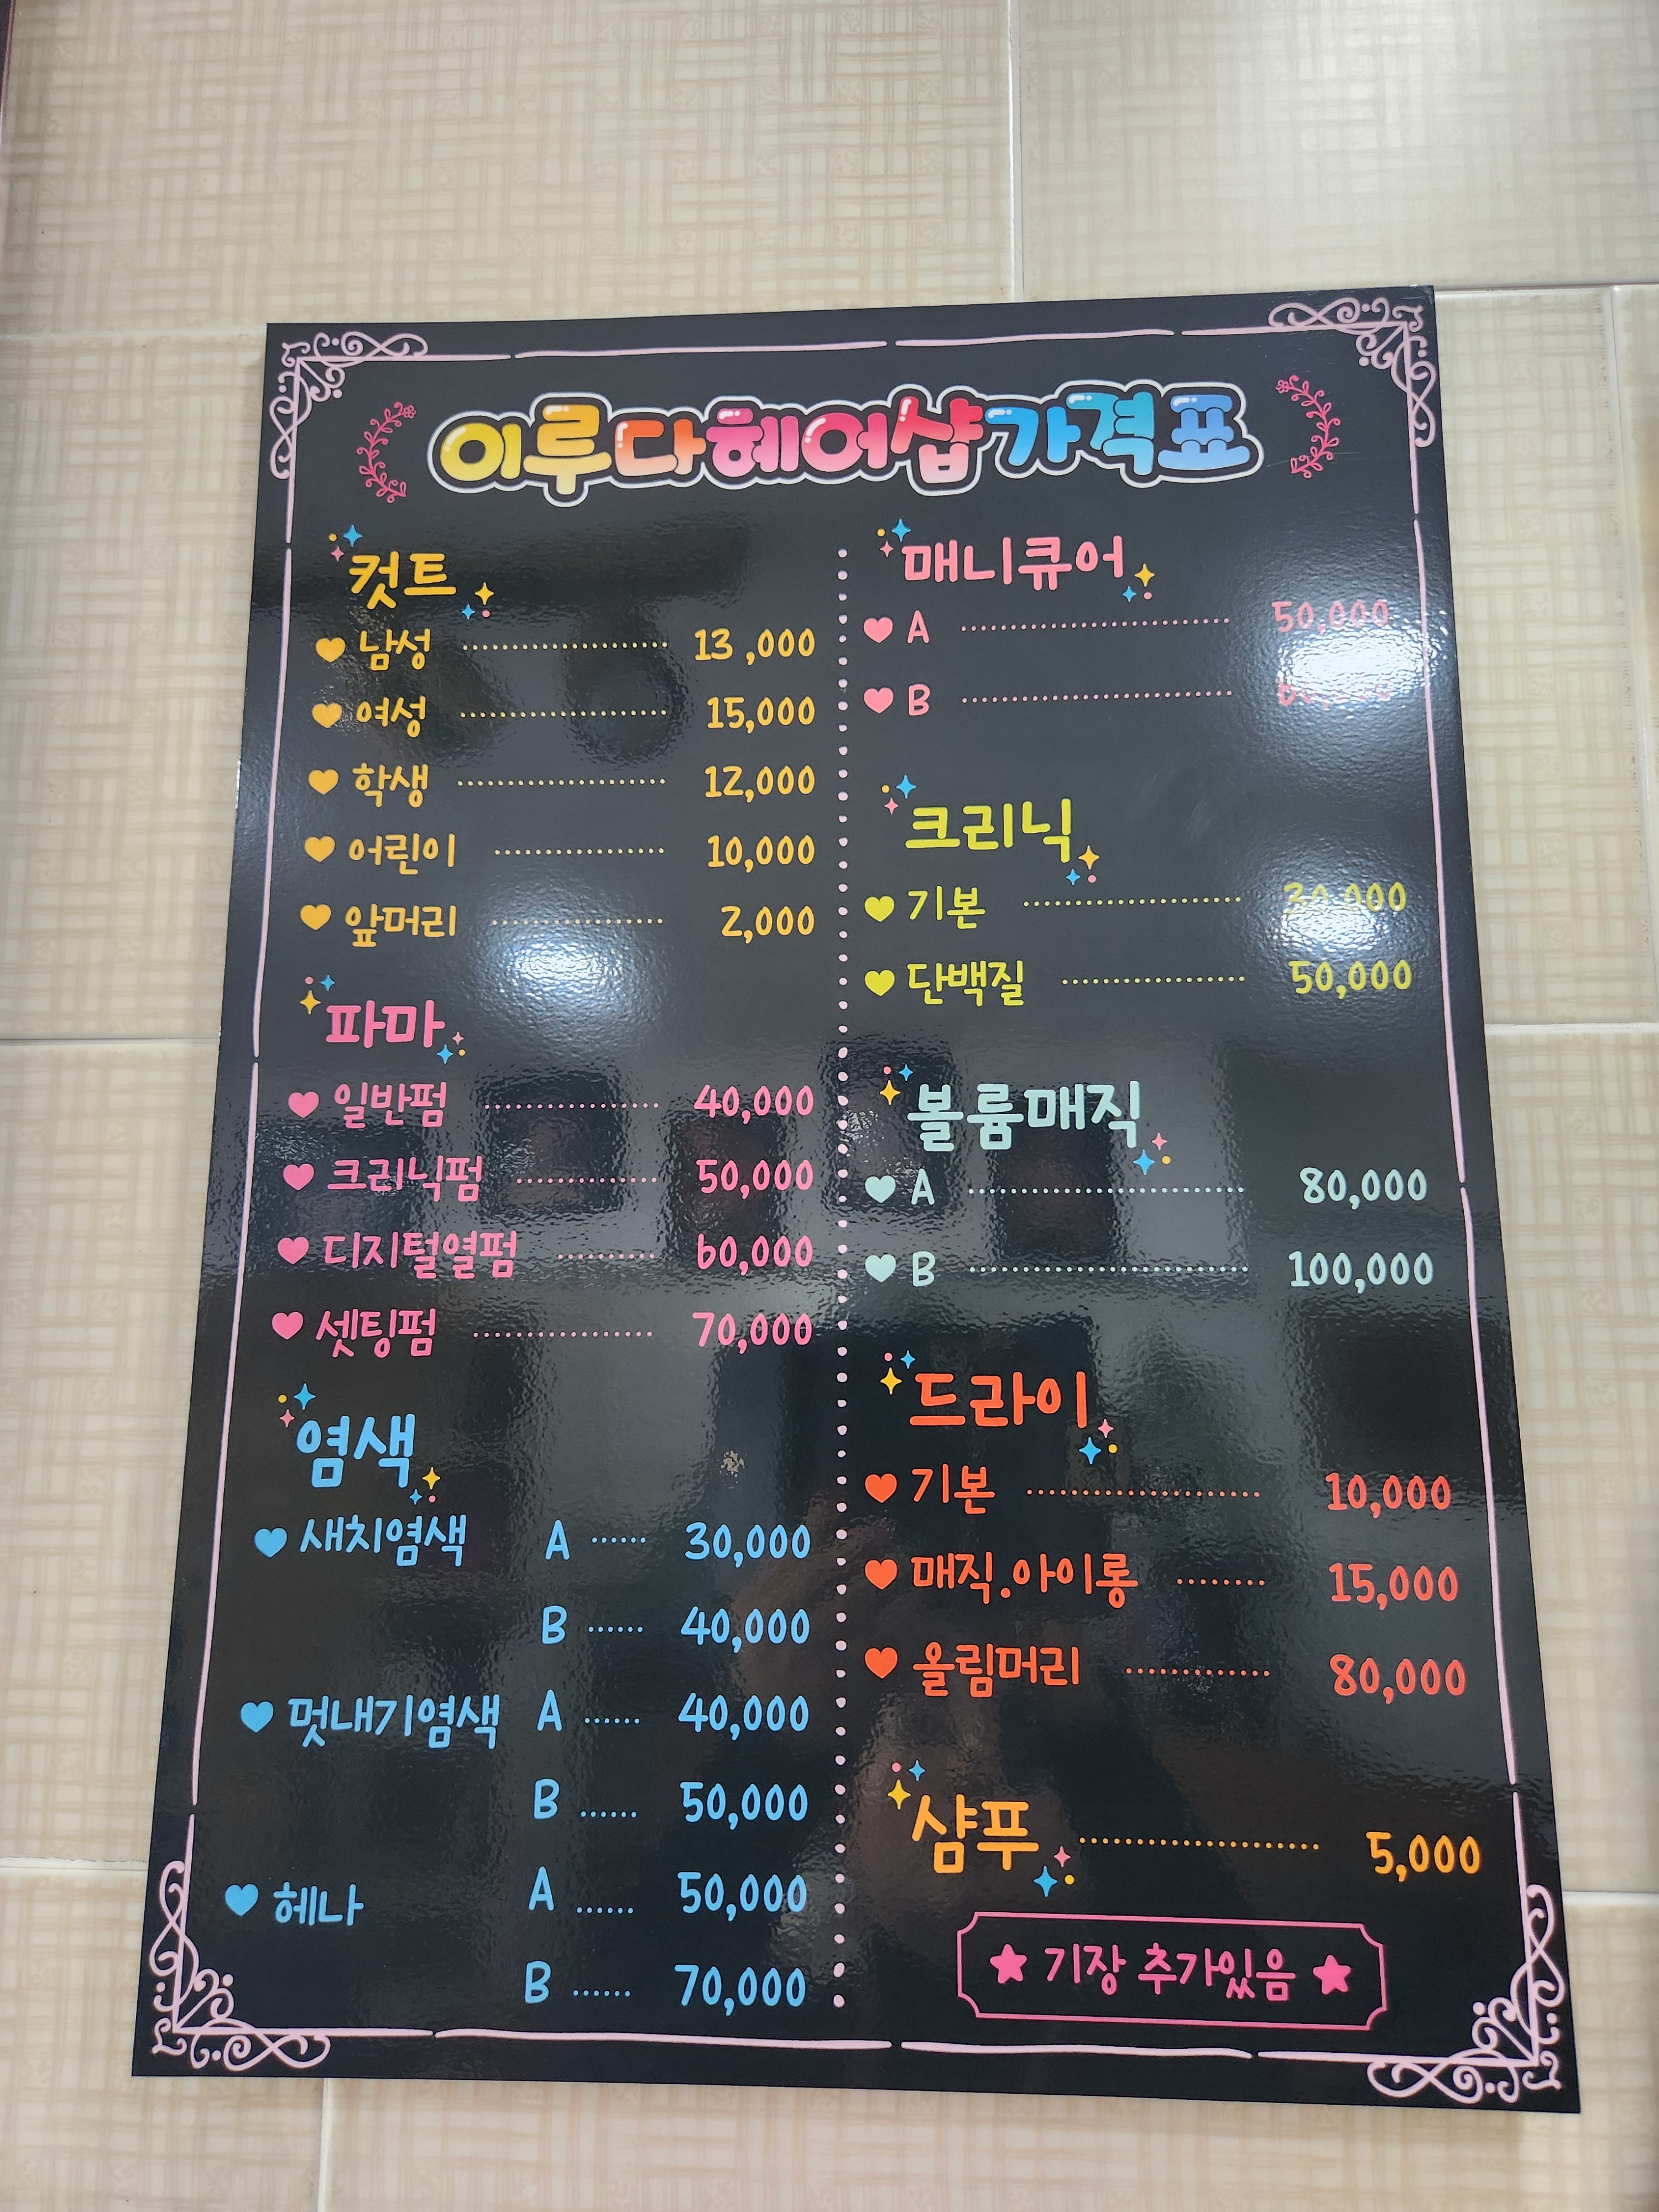 이루다헤어샵가격표
컷트
남성 13,000
여성 15,000
학생 12,000
어린이 10,000
앞머리 2,000
파마
일반펌 40,000
크리닉펌 50,000
디지털열펌 60,000
셋팅펌 70,000
염색
새치염색 A 30,000
B 40,000
멋내기염색 A 40,000
B 50,000
헤나 A 50,000
B 70,000
매니큐어
A 50,000
B
크리닉
기본 30,000
단백질 50,000
볼륨매직
A 80,000
B 100,000
드라이
기본 10,000
매직.아이롱 15,000
올림머리 80,000
샴푸 5,000
★ 기장 추가있음 ★